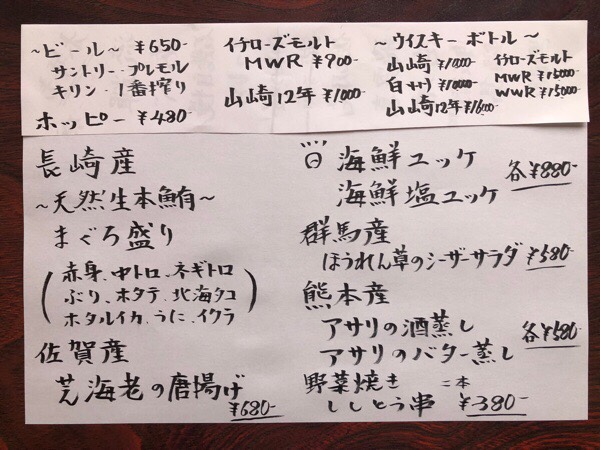 ~ビール~ ¥650-
サントリー・プレモル
キリン・1番搾り
ホッピー ¥480-
イチローズモルト
MWR ¥900-
山崎12年 ¥1,000-
~ウイスキーボトル~
山崎 ¥10,000-
白州 ¥10,000-
山崎12年 ¥16,000-
イチローズモルト
MWR ¥15,000-
WWR ¥15,000-
長崎産
~天然生本鮪~
まぐろ盛り
(赤身、中トロ、ネギトロ
ぶり、ホタテ、北海タコ
ホタルイカ、うに、イクラ)
佐賀産
芝海老の唐揚げ
¥680-
海鮮ユッケ
海鮮塩ユッケ
各¥880-
群馬産
ほうれん草のシーザーサラダ ¥580-
熊本産
アサリの酒蒸し
アサリのバター蒸し
各¥580-
野菜焼き 二本
ししとう串 ¥380-